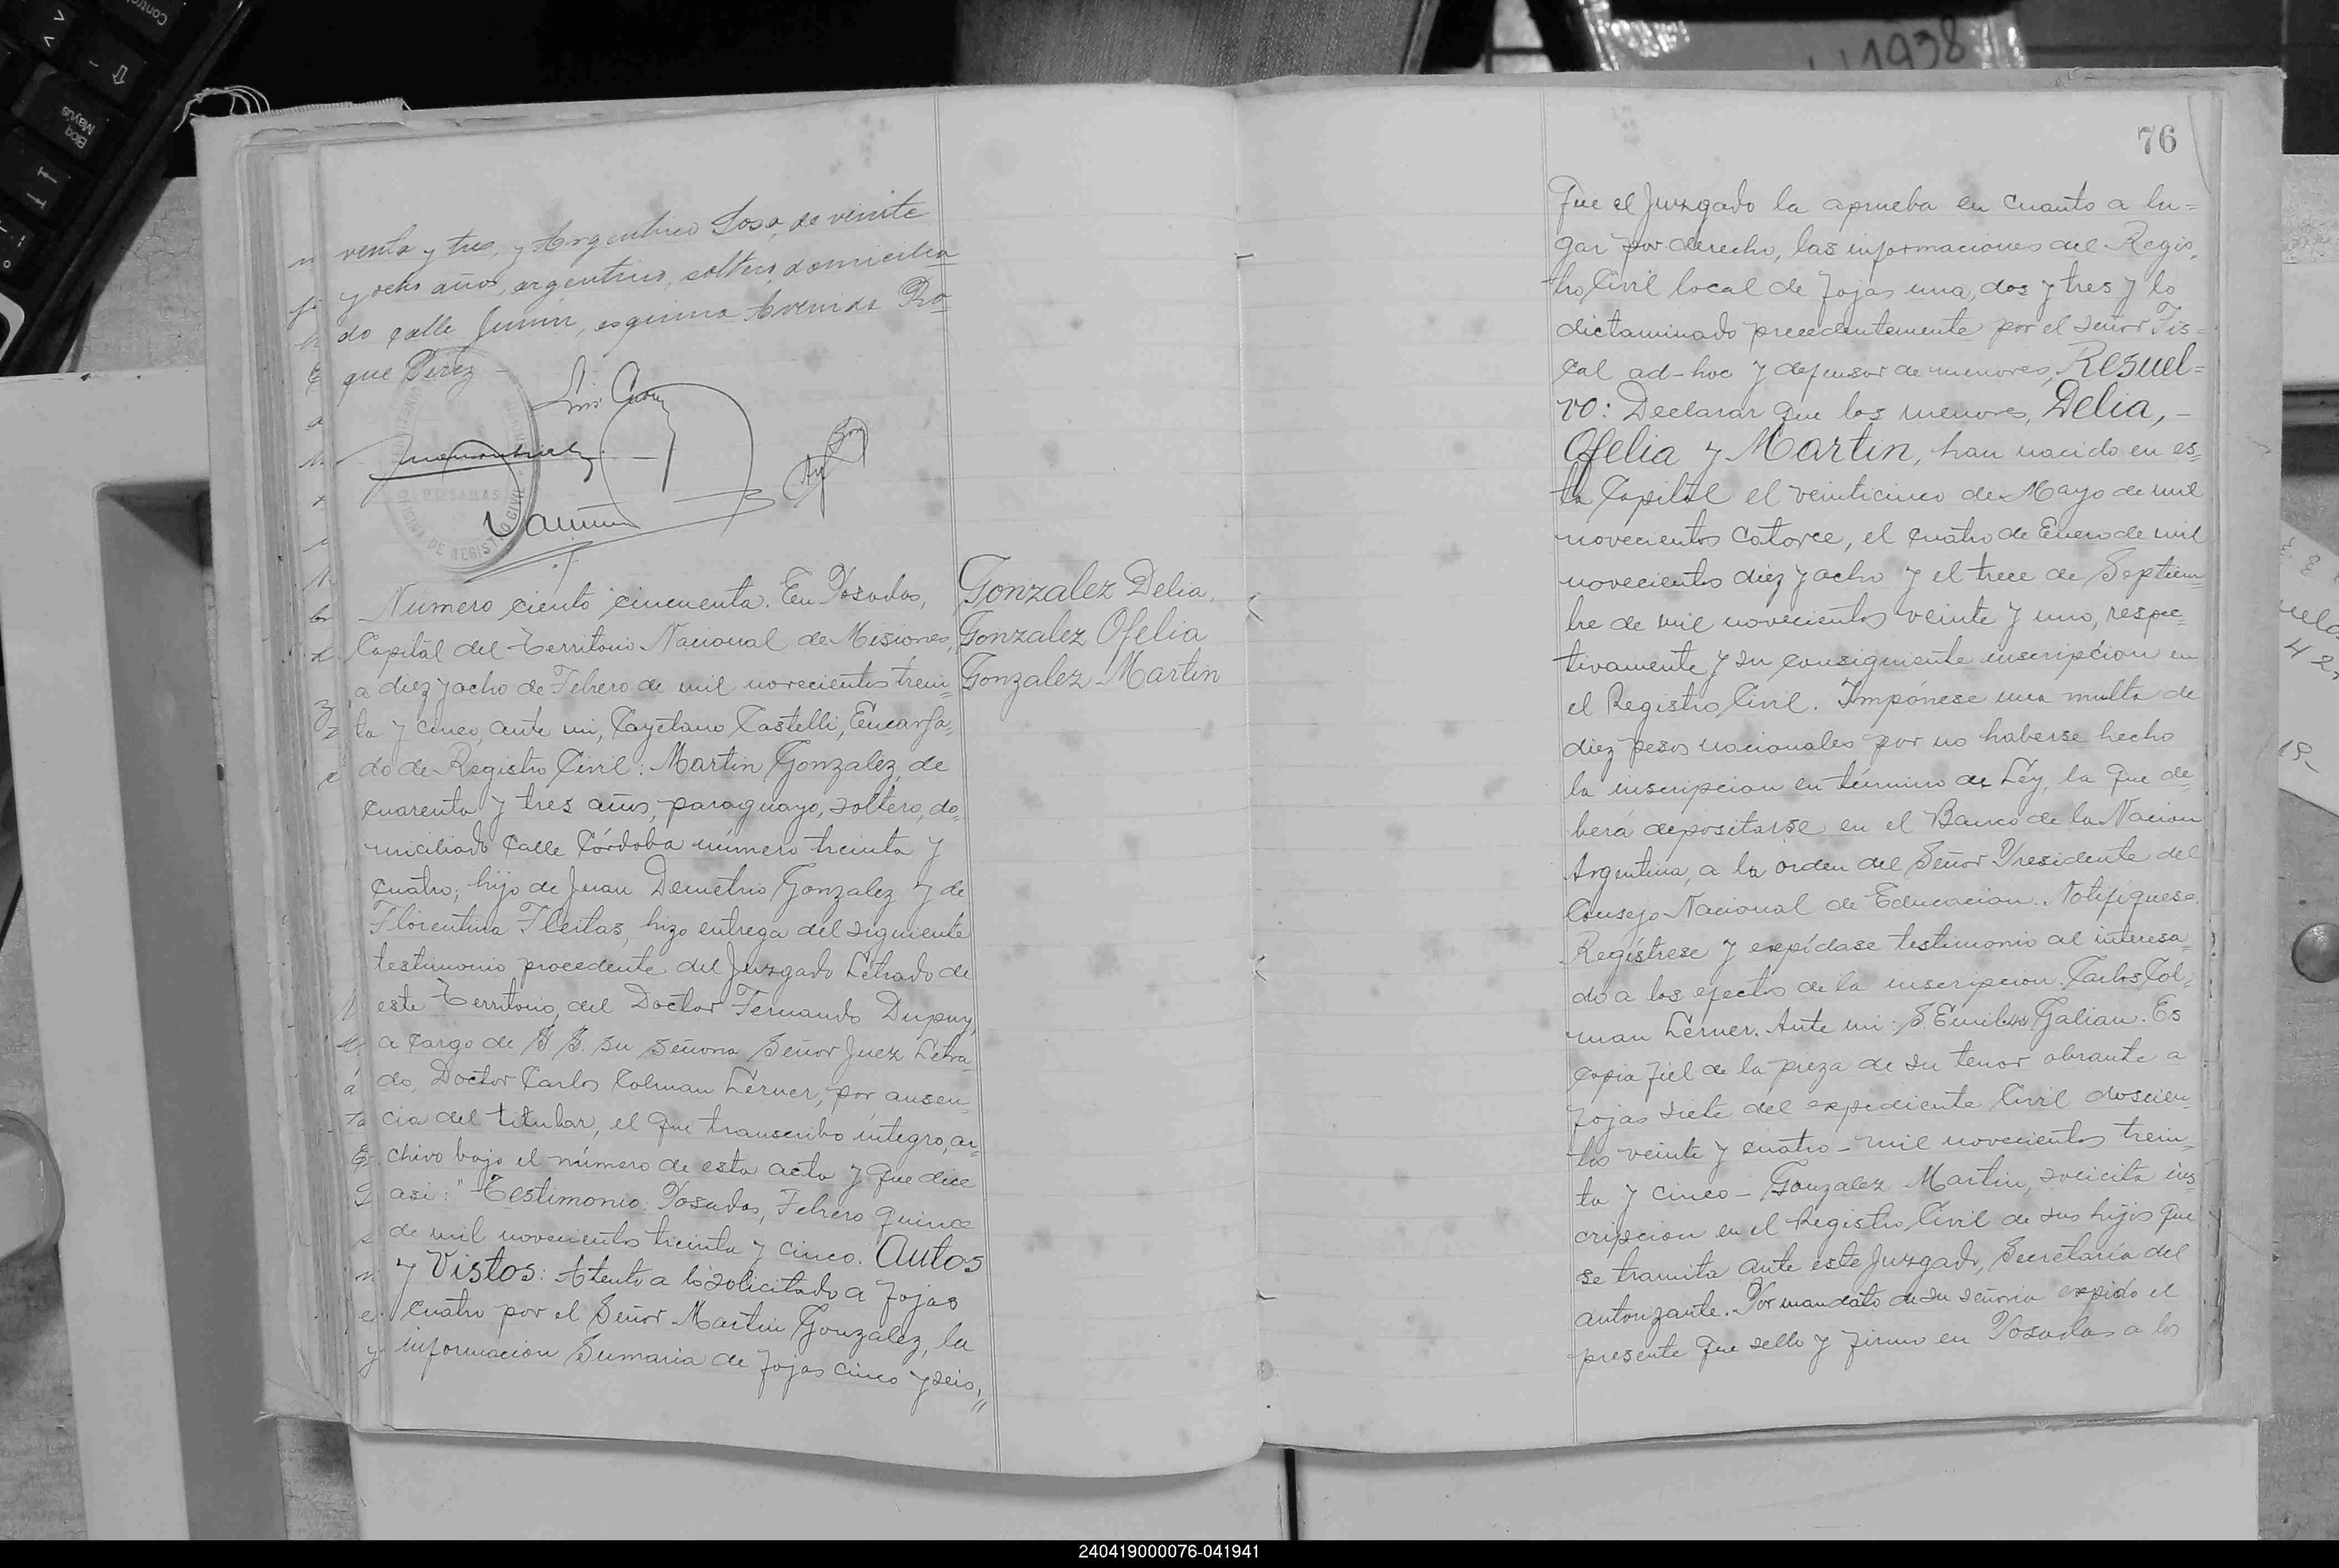 venta y tres, y Argentino Sosa, de veinte
y ocho años, argentino, soltero, domicilia
do calle Junin, esquina Avenida Ro=
que Perez
POSADAS
OFICINA DE REGISTRO CIVIL
Numero ciento cincuenta. En Posadas,
Capital del Territorio Nacional de Misiones,
a diez y ocho de Febrero de mil novecientos trein=
ta y cinco, ante mi, Cayetano Castelli, Encarga=
do de Registro Civil: Martin Gonzalez, de
cuarenta y tres años, paraguayo, soltero, do=
miciliado Calle Córdoba número treinta y
cuatro; hijo de Juan Demetrio Gonzalez y de
Florentina Fleitas, hizo entrega del siguiente
testimonio procedente del Juzgado Letrado de
este Territorio, del Doctor Fernando Dupuy,
a cargo de S. S. su señoria Señor Juez Letra
do, Doctor Carlos Colman Lérner, por ausen=
cia del titular, el que transcribo integro, ar=
chivo bajo el número de esta acta y que dice
asi: "Testimonio: Posadas, Febrero quince
de mil novecientos treinta y cinco. Autos
y Vistos: Atento a lo solicitado a fojas
cuatro por el Señor Martin Gonzalez, la
informacion Sumaria de fojas cinco y seis,
Gonzalez Delia,
Gonzalez Ofelia
Gonzalez Martin
76
que el Juzgado la aprueba en cuanto a lu=
gar por derecho, las informaciones del Regis,
tro Civil local de fojas una, dos y tres y lo
dictaminado precedentemente por el señor Fis=
cal ad-hoc y defensor de menores, Resuel=
vo: Declarar que los menores, Delia, -
Ofelia y Martin, han nacido en es=
ta Capital el veinticinco de Mayo de mil
novecientos catorce, el cuatro de Enero de mil
novecientos diez y ocho y el trece de Septiem
bre de mil novecientos veinte y uno, respec=
tivamente y su consiguiente inscripcion en
el Registro Civil. Impónese una multa de
diez pesos nacionales por no haberse hecho
la inscripcion en término de Léy, la que de=
berá depositarse en el Banco de la Nacion
Argentina, a la orden del Señor Presidente del
Consejo Nacional de Educacion. Notifiquese.
Regístrese y expídase testimonio al interesa=
do a los efectos de la inscripcion. Carlos Col=
man Lérner. Ante mi: S. Emilio Galian. Es
copia fiel de la pieza de su tenor obrante a
fojas siete del expediente Civil doscien=
tos veinte y cuatro - mil novecientos trein=
ta y cinco - Gonzalez Martin, solicita ins
cripcion en el Registro Civil de sus hijos que
se tramita ante este Juzgado, Secretaría del
autorizante. Por mandato de su señoria expido el
presente que sello y firmo en Posadas a los
1938
Control
Bloq
Mayús
240419000076-041941